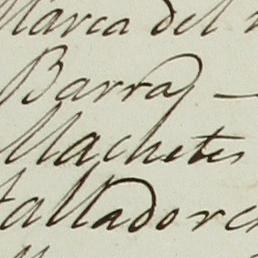 Marca del
Barras —
Machetes
talladores